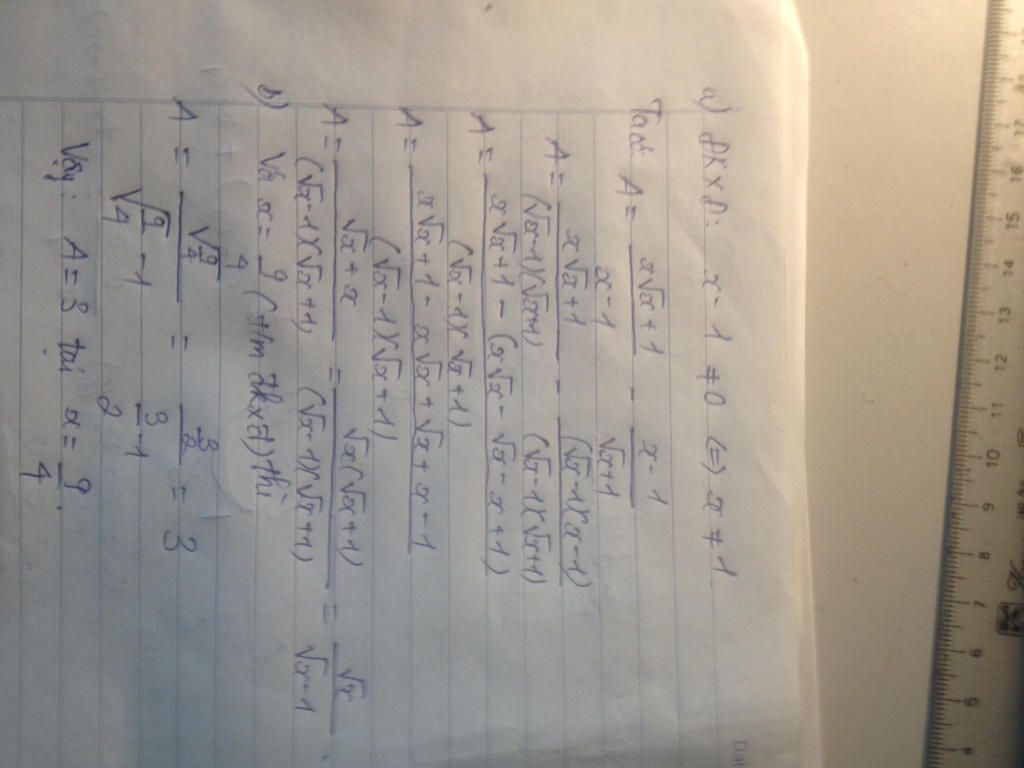 a) ĐKXĐ: x - 1 ≠ 0 (=) x ≠ 1
Ta có: A = x√x + 1 / x - 1 - x - 1 / √x + 1
A = x√x + 1 / (√x - 1)(√x + 1) - (√x - 1)(x - 1) / (√x - 1)(√x + 1)
A = x√x + 1 - (x√x - √x - x + 1) / (√x - 1)(√x + 1)
A = x√x + 1 - x√x + √x + x - 1 / (√x - 1)(√x + 1)
A = √x + x / (√x - 1)(√x + 1) = √x(√x + 1) / (√x - 1)(√x + 1) = √x / √x - 1
b) Với x = 9/4 (t/m đkxđ) thì
A = √9/4 / √9/4 - 1 = 3/2 / 3/2 - 1 = 3
Vậy: A = 3 tại x = 9/4.
16 15 14 13 12 11 10 9 8 7 6 5 4